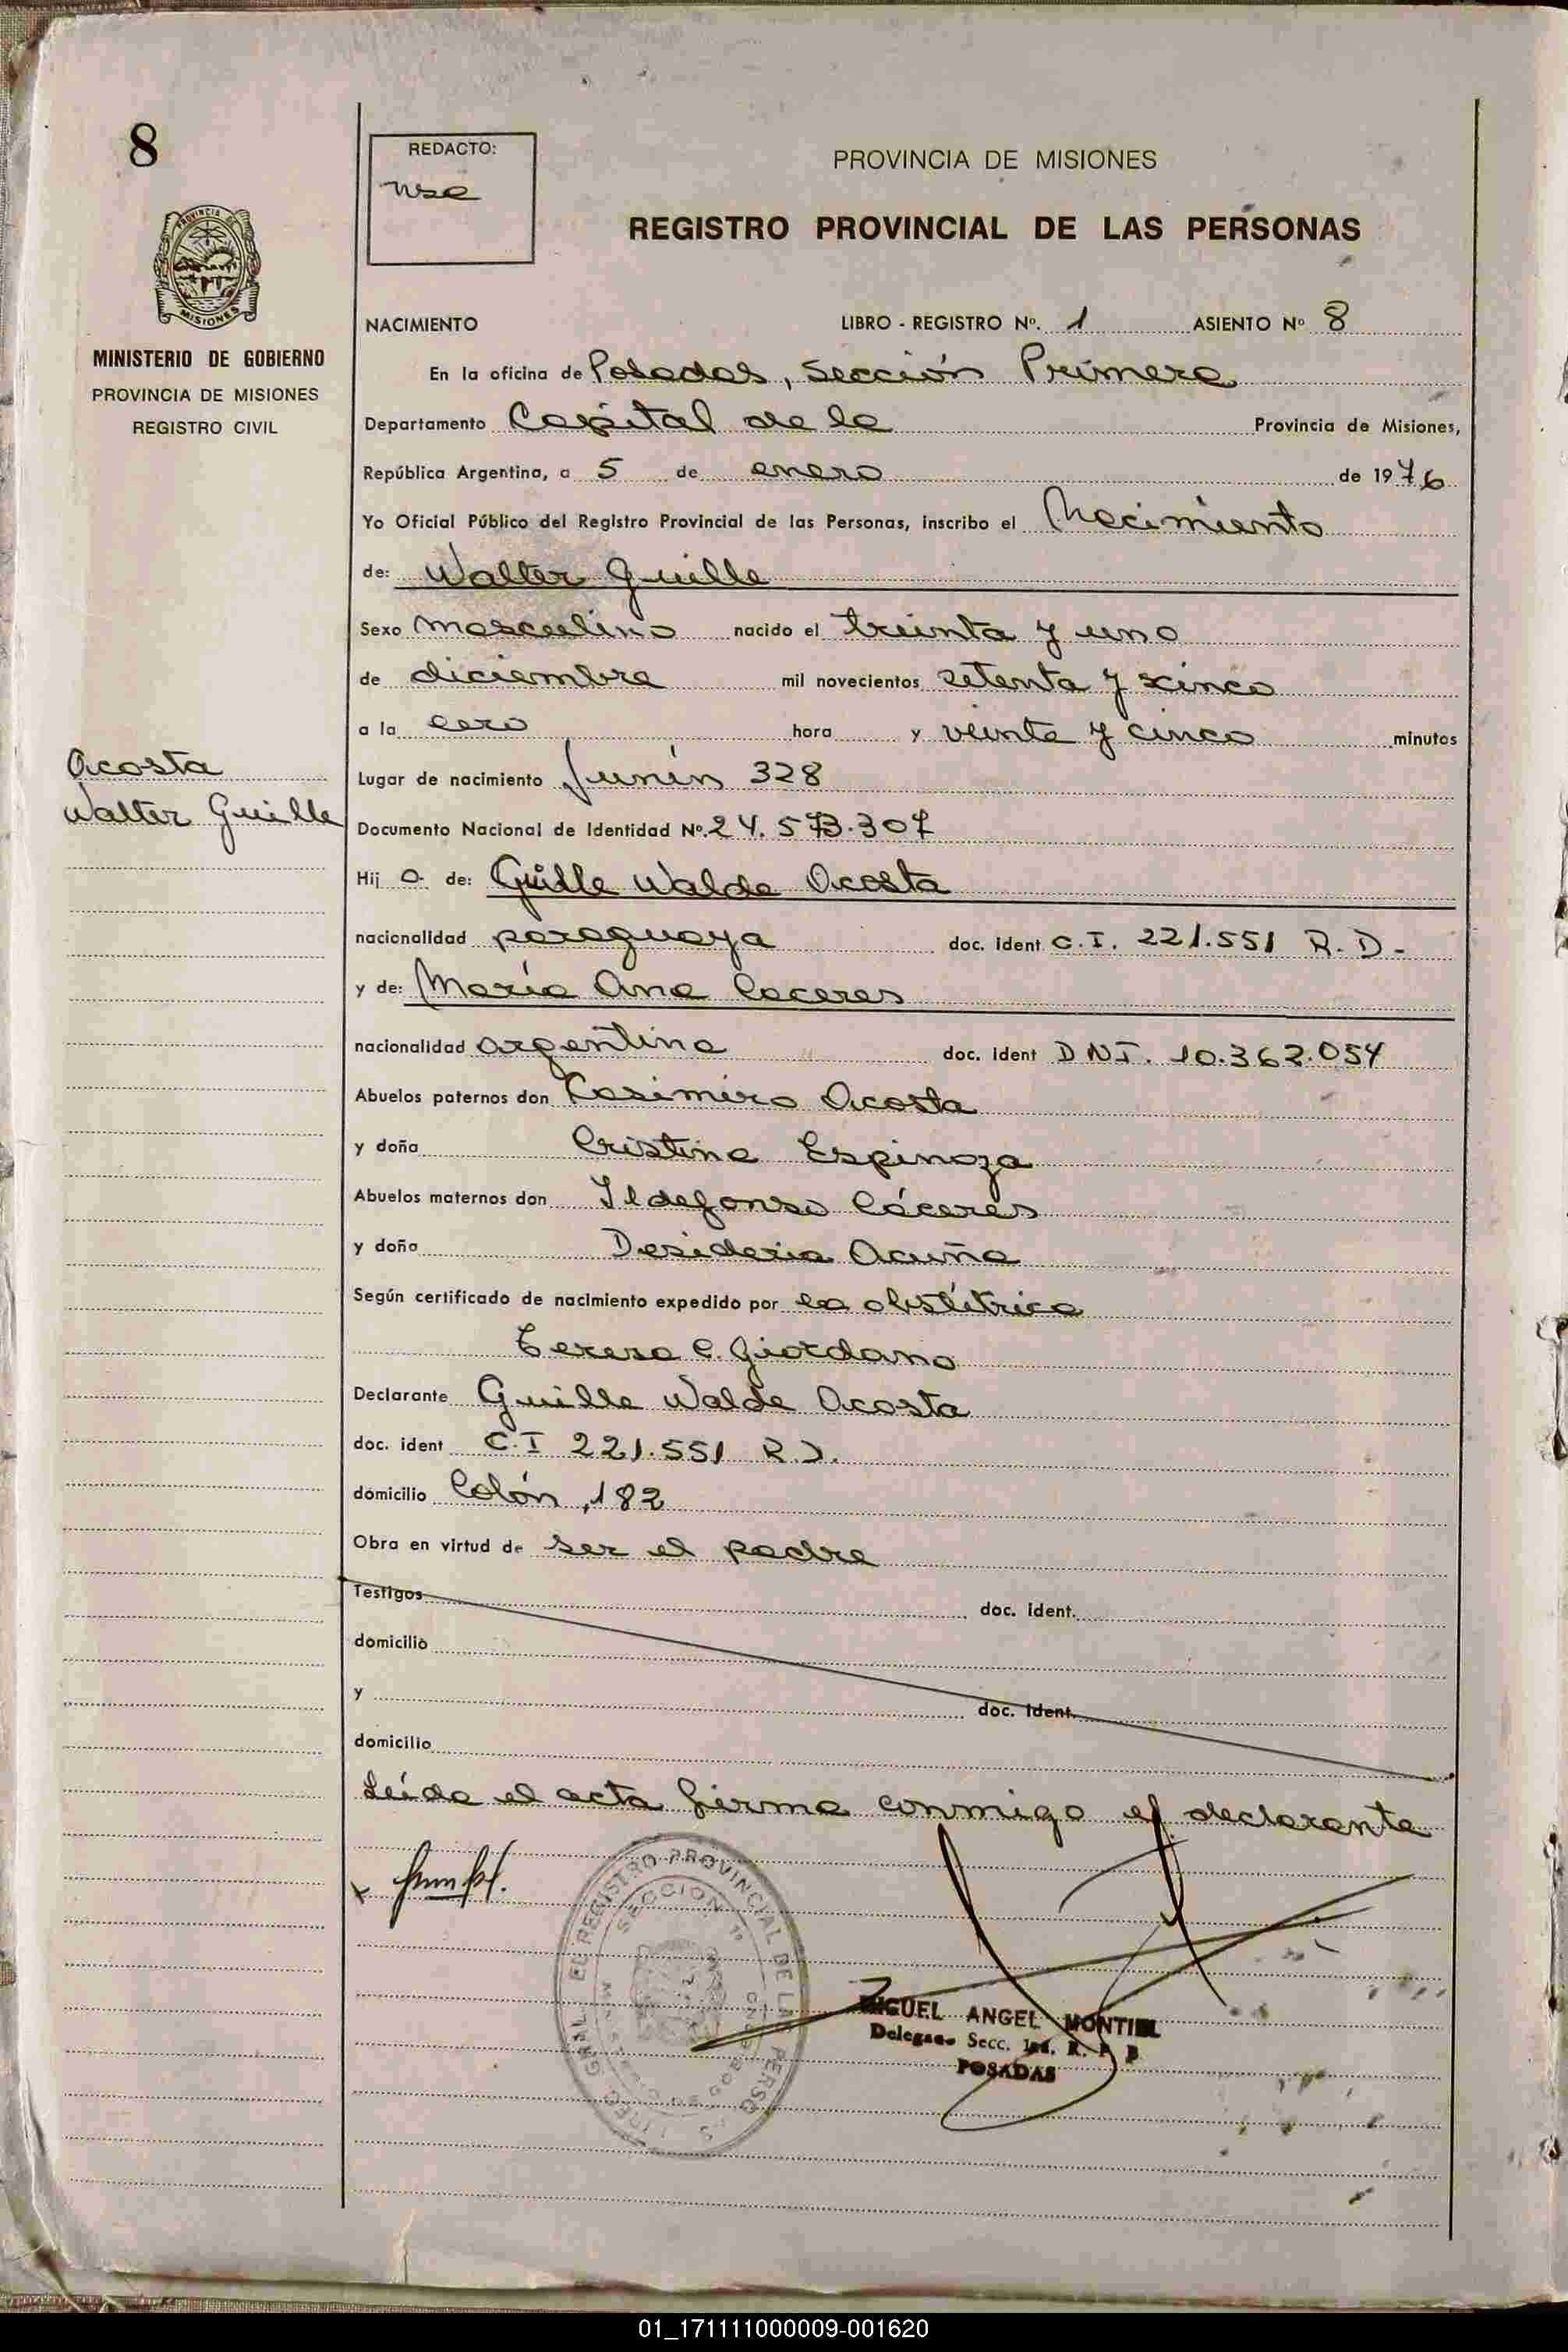 8
REDACTO:
PROVINCIA DE MISIONES
REGISTRO PROVINCIAL DE LAS PERSONAS
PROVINCIA DE
MISIONES
MINISTERIO DE GOBIERNO
PROVINCIA DE MISIONES
REGISTRO CIVIL
NACIMIENTO LIBRO - REGISTRO Nº. 1 ASIENTO Nº 8
En la oficina de Posadas, Sección Primera
Departamento Capital de la Provincia de Misiones,
República Argentina, a 5 de enero de 1976
Yo Oficial Público del Registro Provincial de las Personas, inscribo el Nacimiento
de: Walter Guille
Sexo masculino nacido el treinta y uno
de diciembre mil novecientos setenta y cinco
a la cero hora y veinte y cinco minutos
Acosta
Walter Guille
Lugar de nacimiento Junín 328
Documento Nacional de Identidad Nº. 24.573.307
Hij o de: Guille Walde Acosta
nacionalidad paraguaya doc. ident C.I. 221.551 R.D.-
y de: María Ana Caceres
nacionalidad argentina doc. ident DNI. 10.362.054
Abuelos paternos don Casimiro Acosta
y doña Cristina Espinoza
Abuelos maternos don Ildefonso Cáceres
y doña Desideria Acuña
Según certificado de nacimiento expedido por la obstétrica
Teresa C. Giordano
Declarante Guille Walde Acosta
doc. ident C.I 221.551 R.D.
domicilio Colón, 182
Obra en virtud de ser el padre
Testigos doc. ident.
domicilio
y doc. ident.
domicilio
Leída el acta firma conmigo el declarante
REGISTRO PROVINCIAL DE LAS PERSO
SECCION 1º
MIGUEL ANGEL MONTIEL
Delegado Secc.
POSADAS
01_171111000009-001620